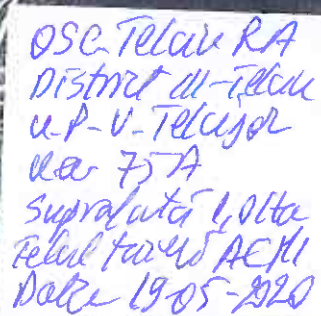 OSC Telciu RA
District III-Telciu
U-P-V-Telcișor
u.a. 75A
Suprafață 1,01ha
Felul tăierii AEM1
Data 19-05-2020